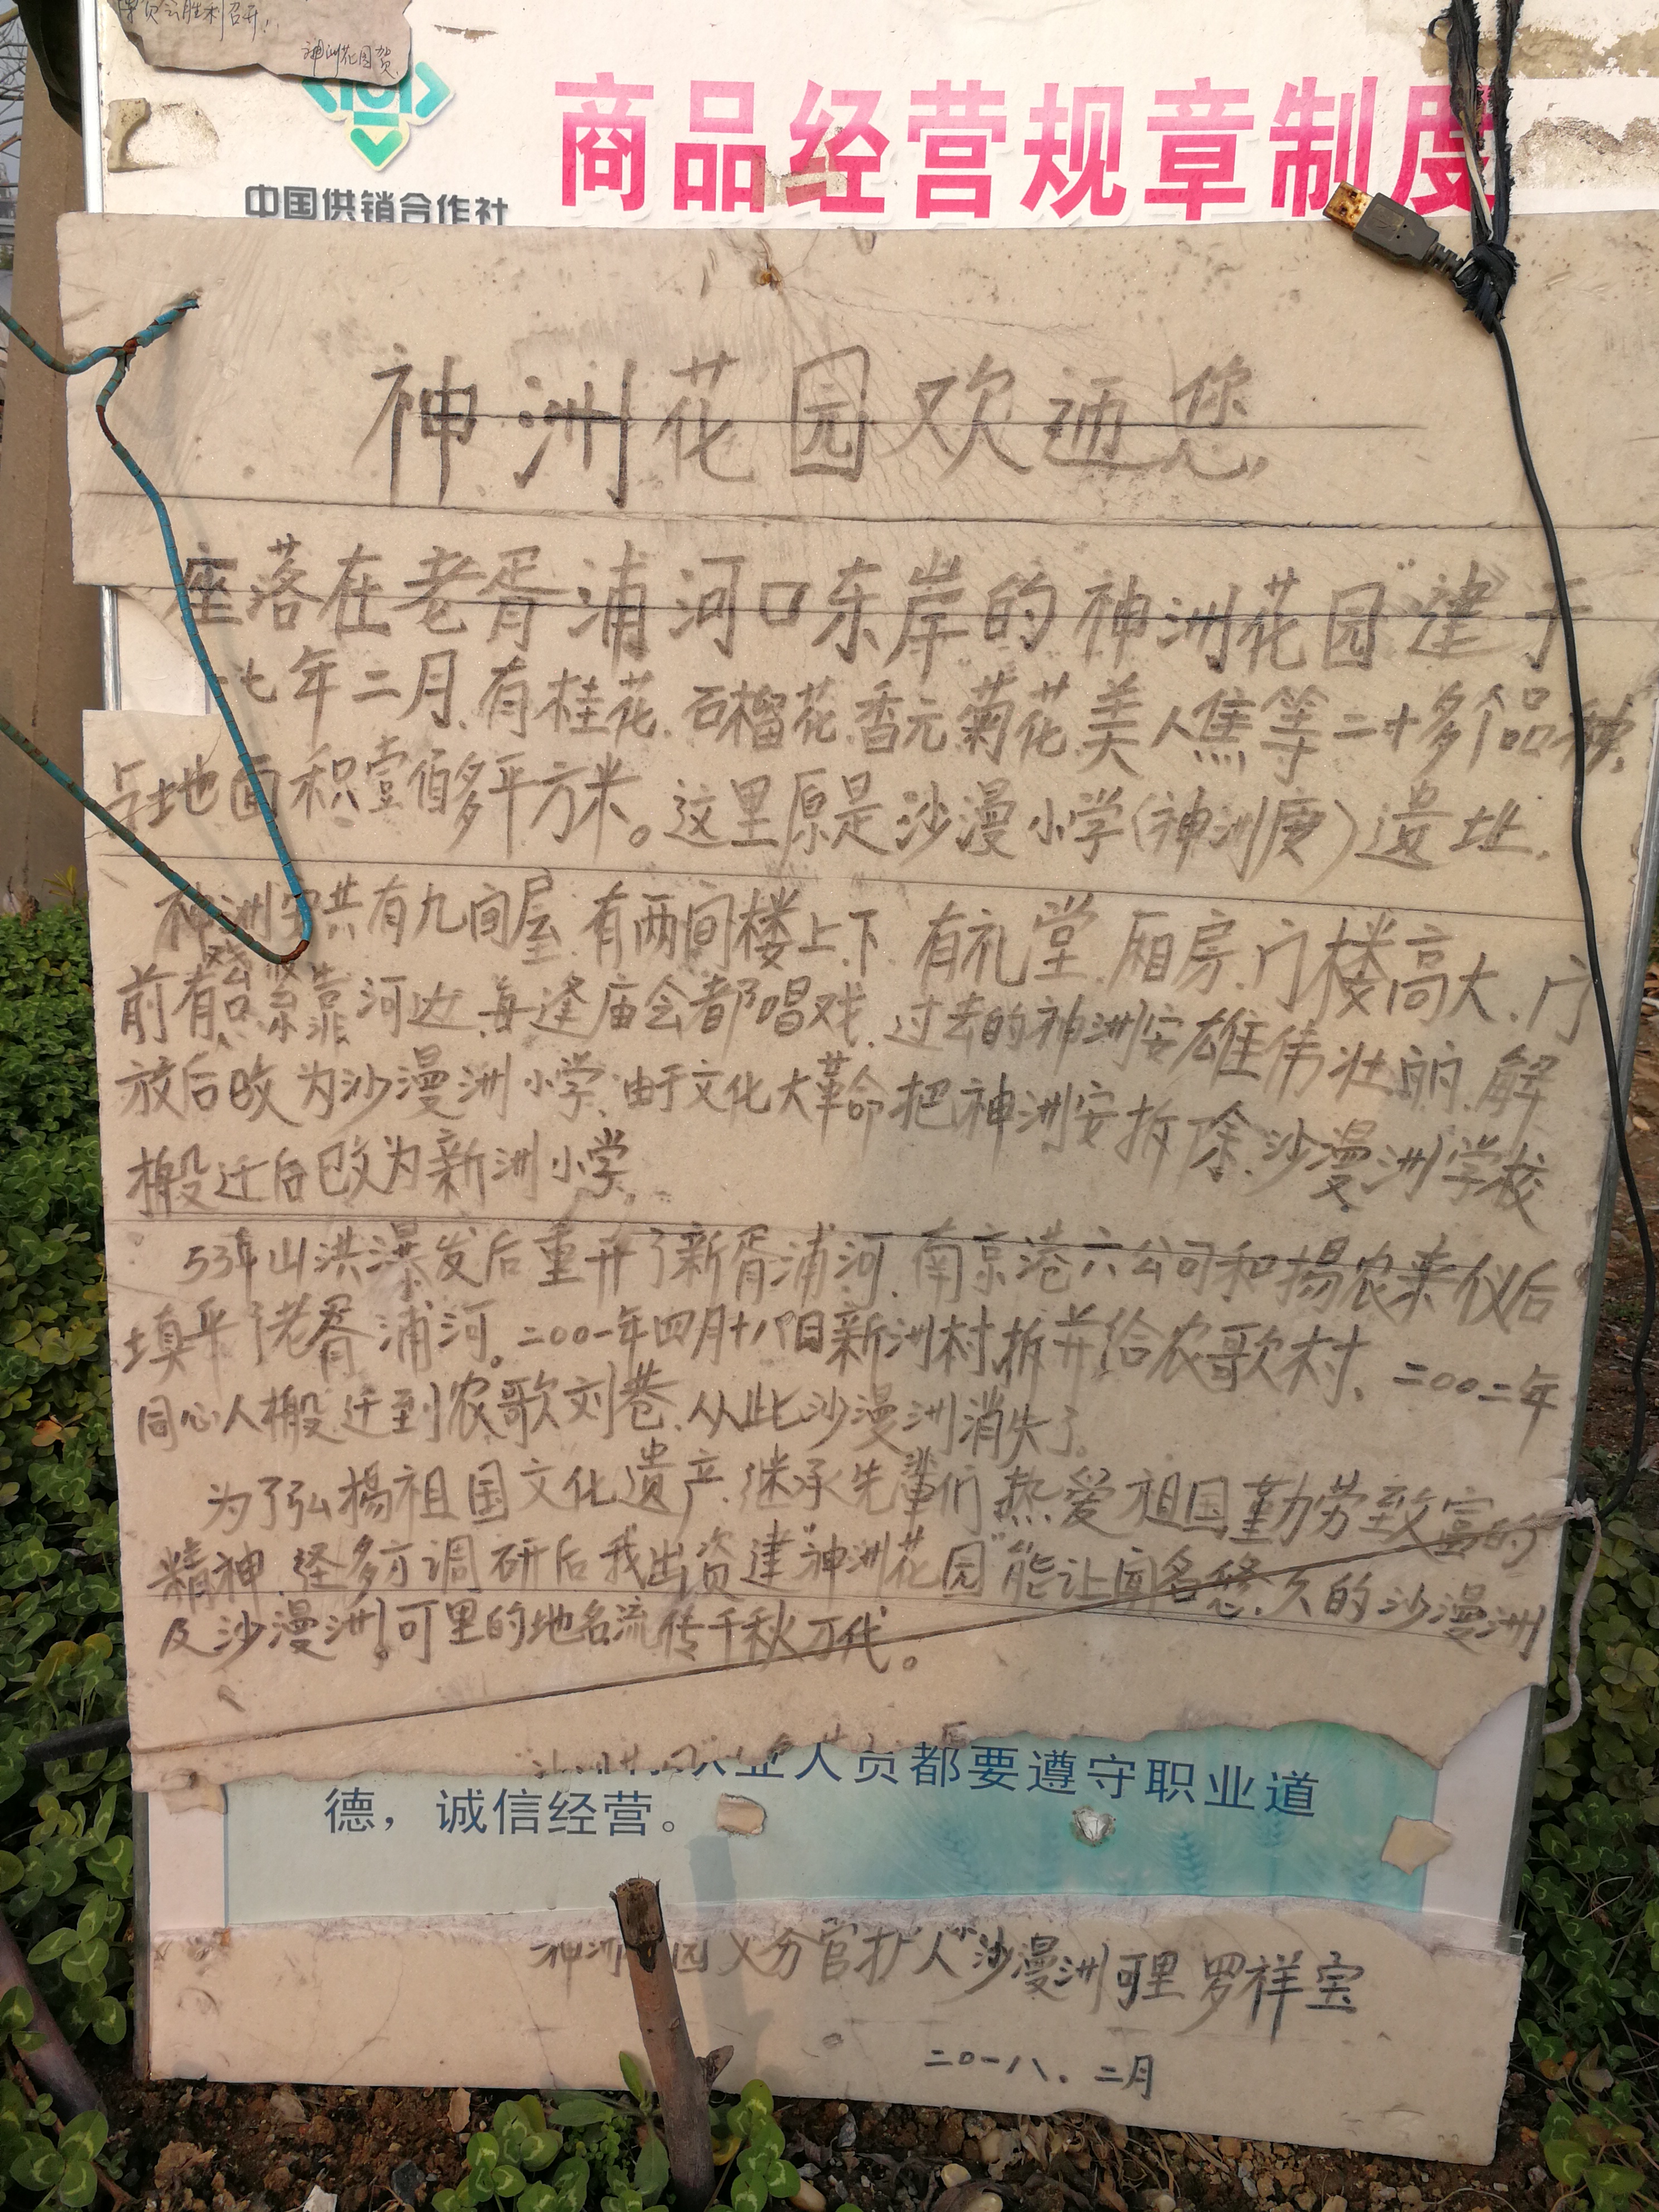 会胜利召开!
神洲花园贺
中国供销合作社
商品经营规章制度
神洲花园欢迊您
座落在老胥浦河口东岸的神洲花园"建于
一七年二月、有桂花、石榴花、香元、菊花、美人焦等二十多个品种,
占地面积壹佰多平方米。这里原是沙漫小学(神洲庵)遗址.
神洲安共有九间屋、有两间楼上、下、有礼堂、厢房、门楼高大、门
前有戏台紧靠河边、每逢庙会都唱戏、过去的神洲安雄伟壮丽、解
放后改为沙漫洲小学、由于文化大革命把神洲安拆除、沙漫洲学校
搬迁后改为新洲小学。
53年山洪瀑发后重开了新胥浦河、南京港六公司和扬农来仪后
填平了老胥浦河。二00一年四月十八日新洲村拆并给农歌村、二00二年
同心人搬迁到农歌刘巷、从此沙漫洲消失了。
为了弘扬祖国文化遗产、继承先辈们热爱祖国勤劳致富的
精神、经多方调研后我出资建"神洲花园"能让闻名悠久的沙漫洲
及沙漫洲可里的地名流传千秋万代。
业人员都要遵守职业道
德，诚信经营。
神洲园义务官护人"沙漫洲可里罗祥宝
二0一八.二月